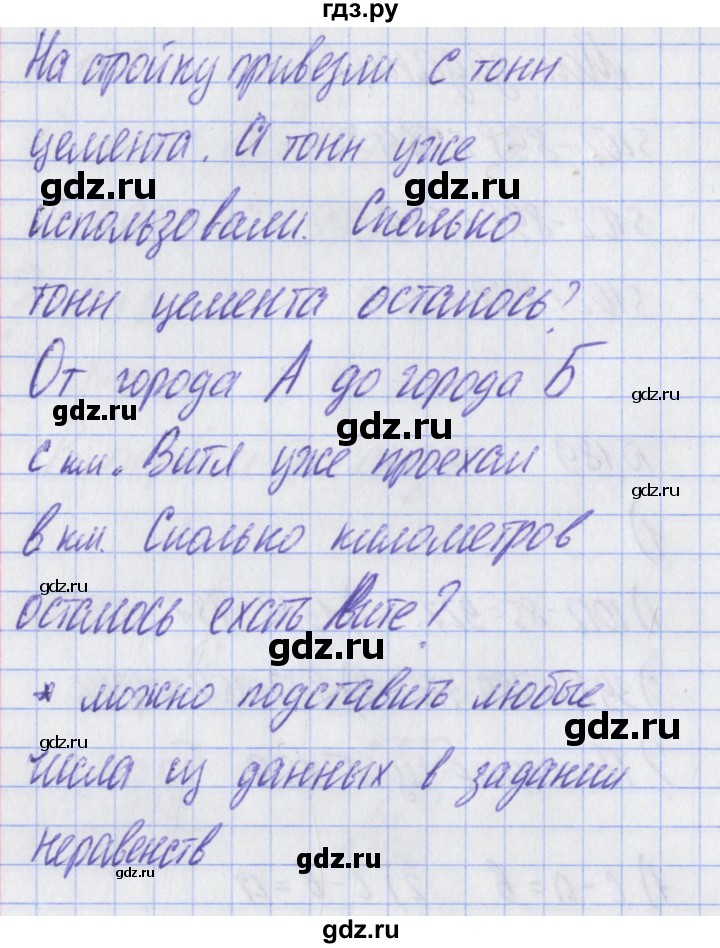 гдз.ру
На стройку привезли с тонн
цемента. а тонн уже
gdz.ru gdz.ru
использовали. Сколько
gdz.ru
тонн цемента осталось?
gdz.ru
От города А до города Б
gdz.ru gdz.ru
с км. Витя уже проехал
gdz.ru
в км. Сколько километров
gdz.ru
осталось ехать Вите?
gdz.ru
* можно подставить любые
gdz.ru
gdz.ru
числа из данных в задании
неравенств
gdz.ru gdz.ru
gdz.ru